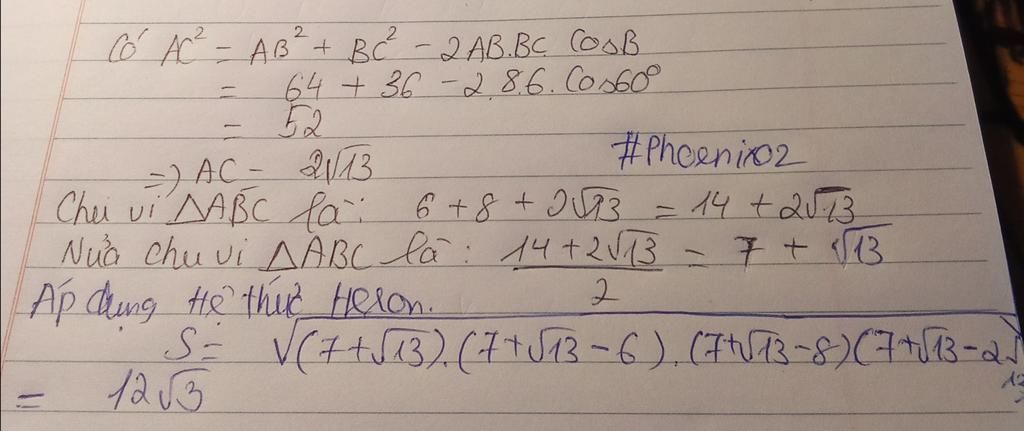 Có AC² = AB² + BC² - 2AB.BC CosB
= 64 + 36 - 2.8.6. Cos60°
= 52
=> AC = 2√13
#Phoenix02
Chu vi △ABC là: 6 + 8 + 2√13 = 14 + 2√13
Nửa chu vi △ABC là: (14 + 2√13)/2 = 7 + √13
Áp dụng Hệ thức Heron.
S = √(7+√13).(7+√13-6).(7+√13-8)(7+√13-2√13)
= 12√3